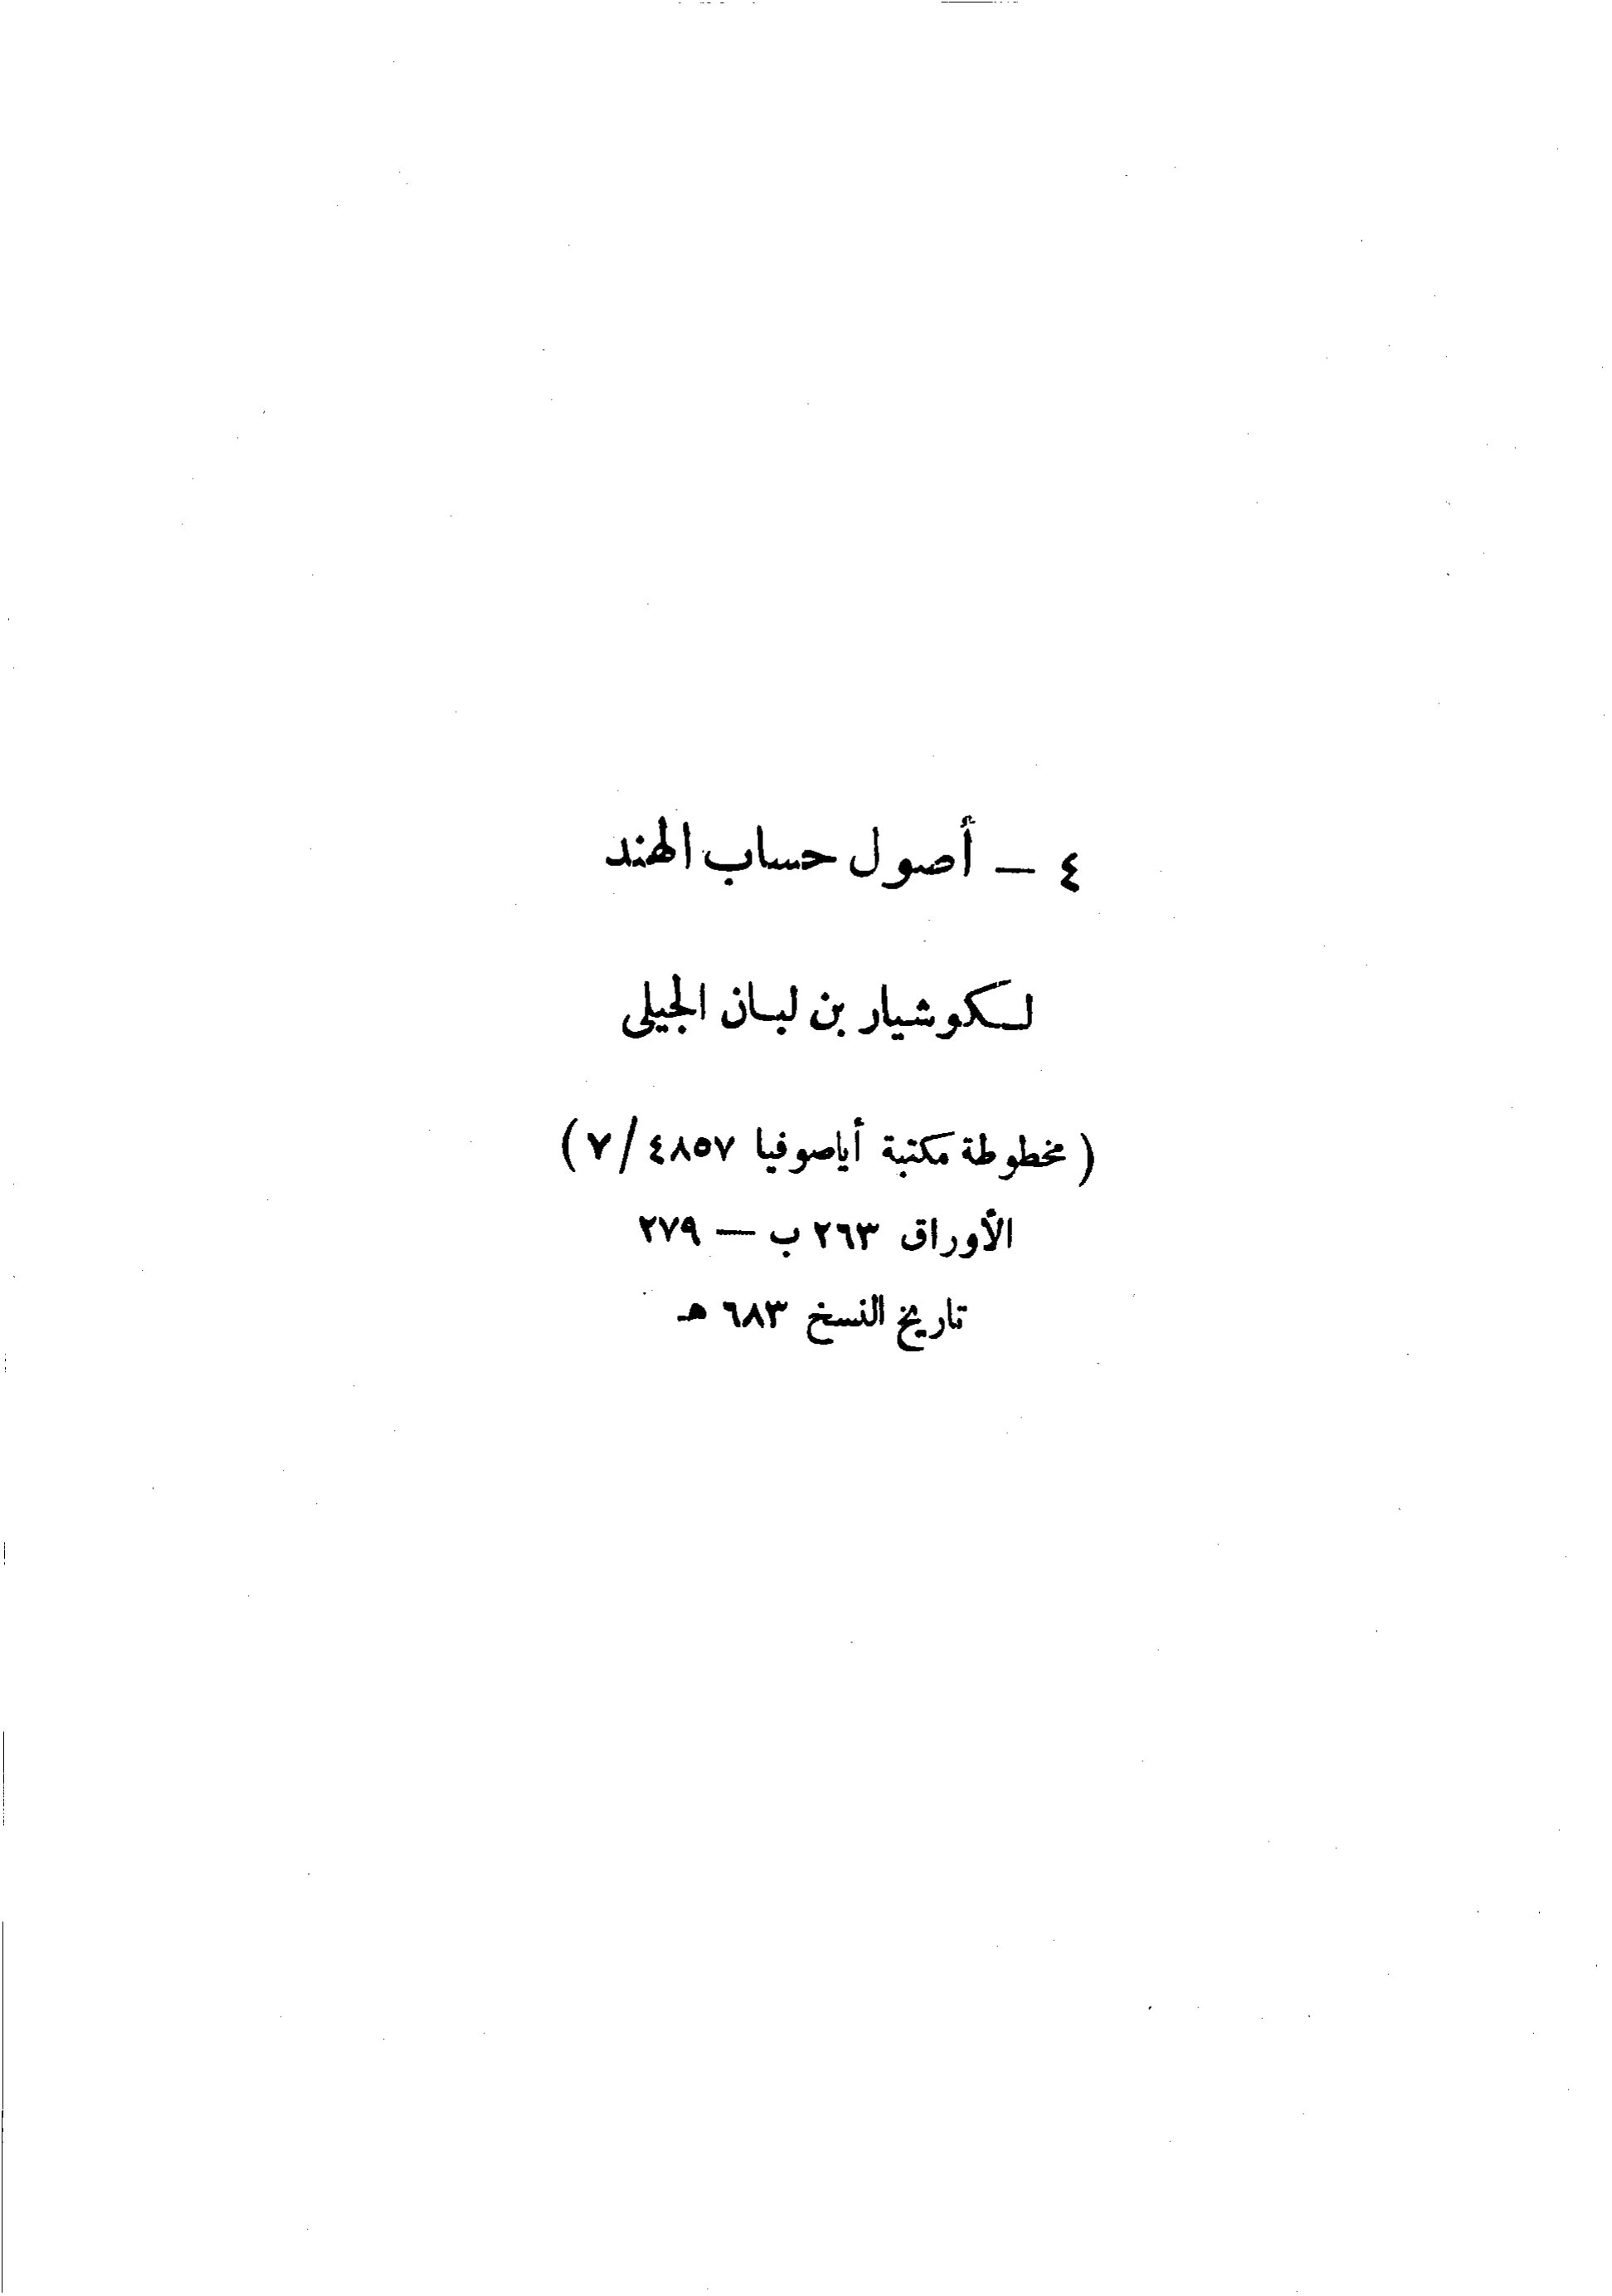 ٤ – أصول حساب الهند
لكوشيار بن لبان الجيلى
( مخطوطة مكتبة أياصوفيا ٤٨٥٧ / ٧ )
الأوراق ٢٦٣ ب – ٢٧٩
تاريخ النسخ ٦٨٣ هـ